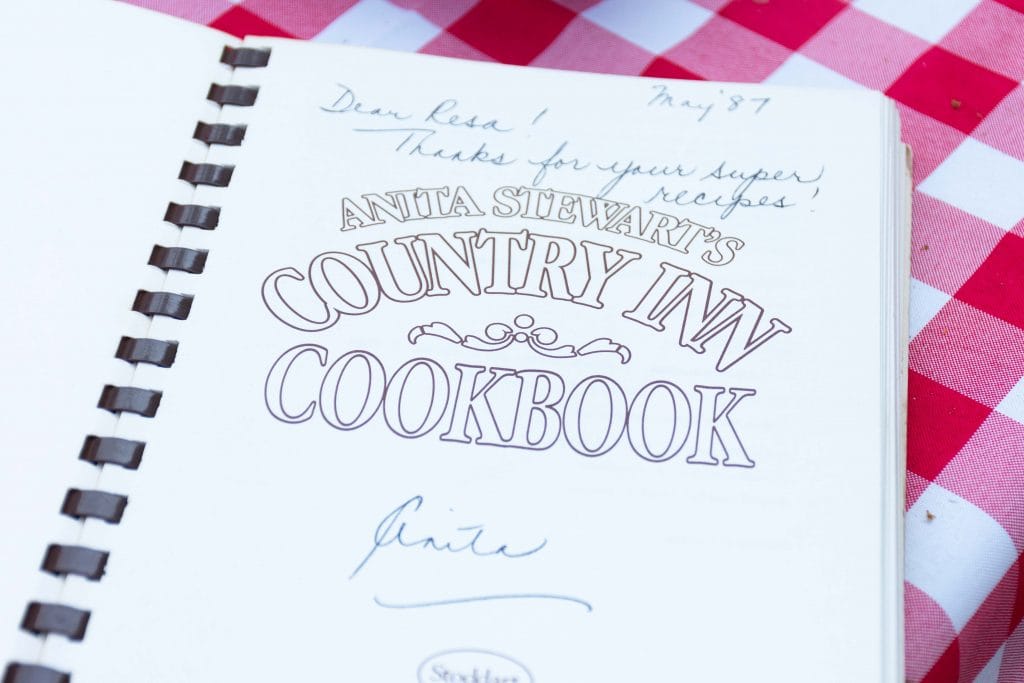 May '87
Dear Resa!
Thanks for your super
recipes!
ANITA STEWART'S
COUNTRY INN
COOKBOOK
Anita
Stoddart